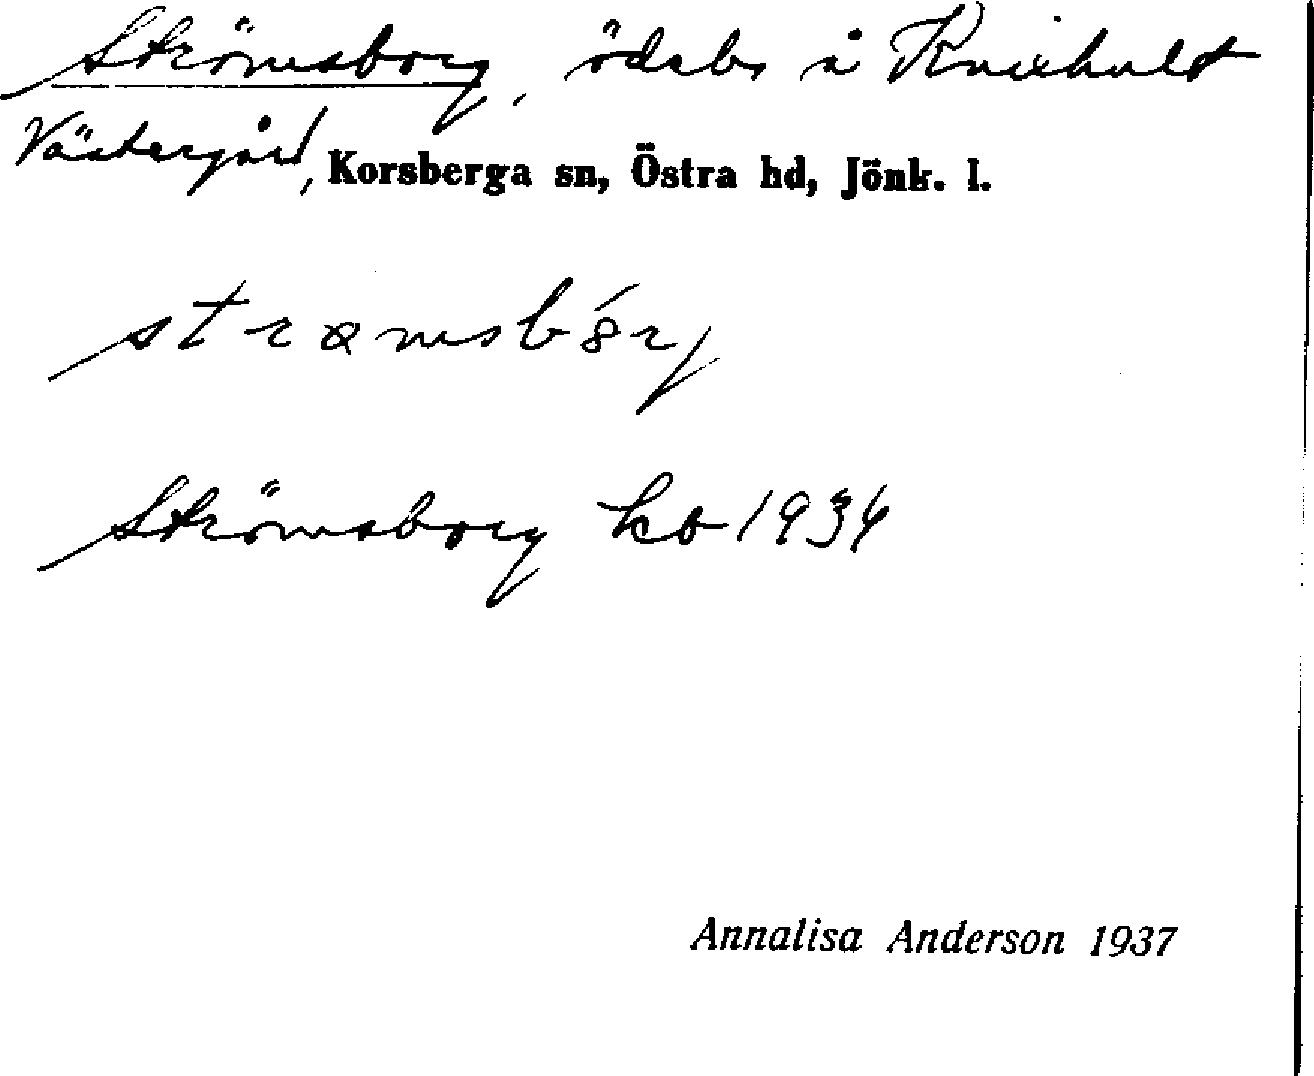 Strömsborg, ödebs å Knixhult
Västergård, Korsberga sn, Östra hd, Jönk. l.
Strömsborg kb 1934
Annalisa Anderson 1937